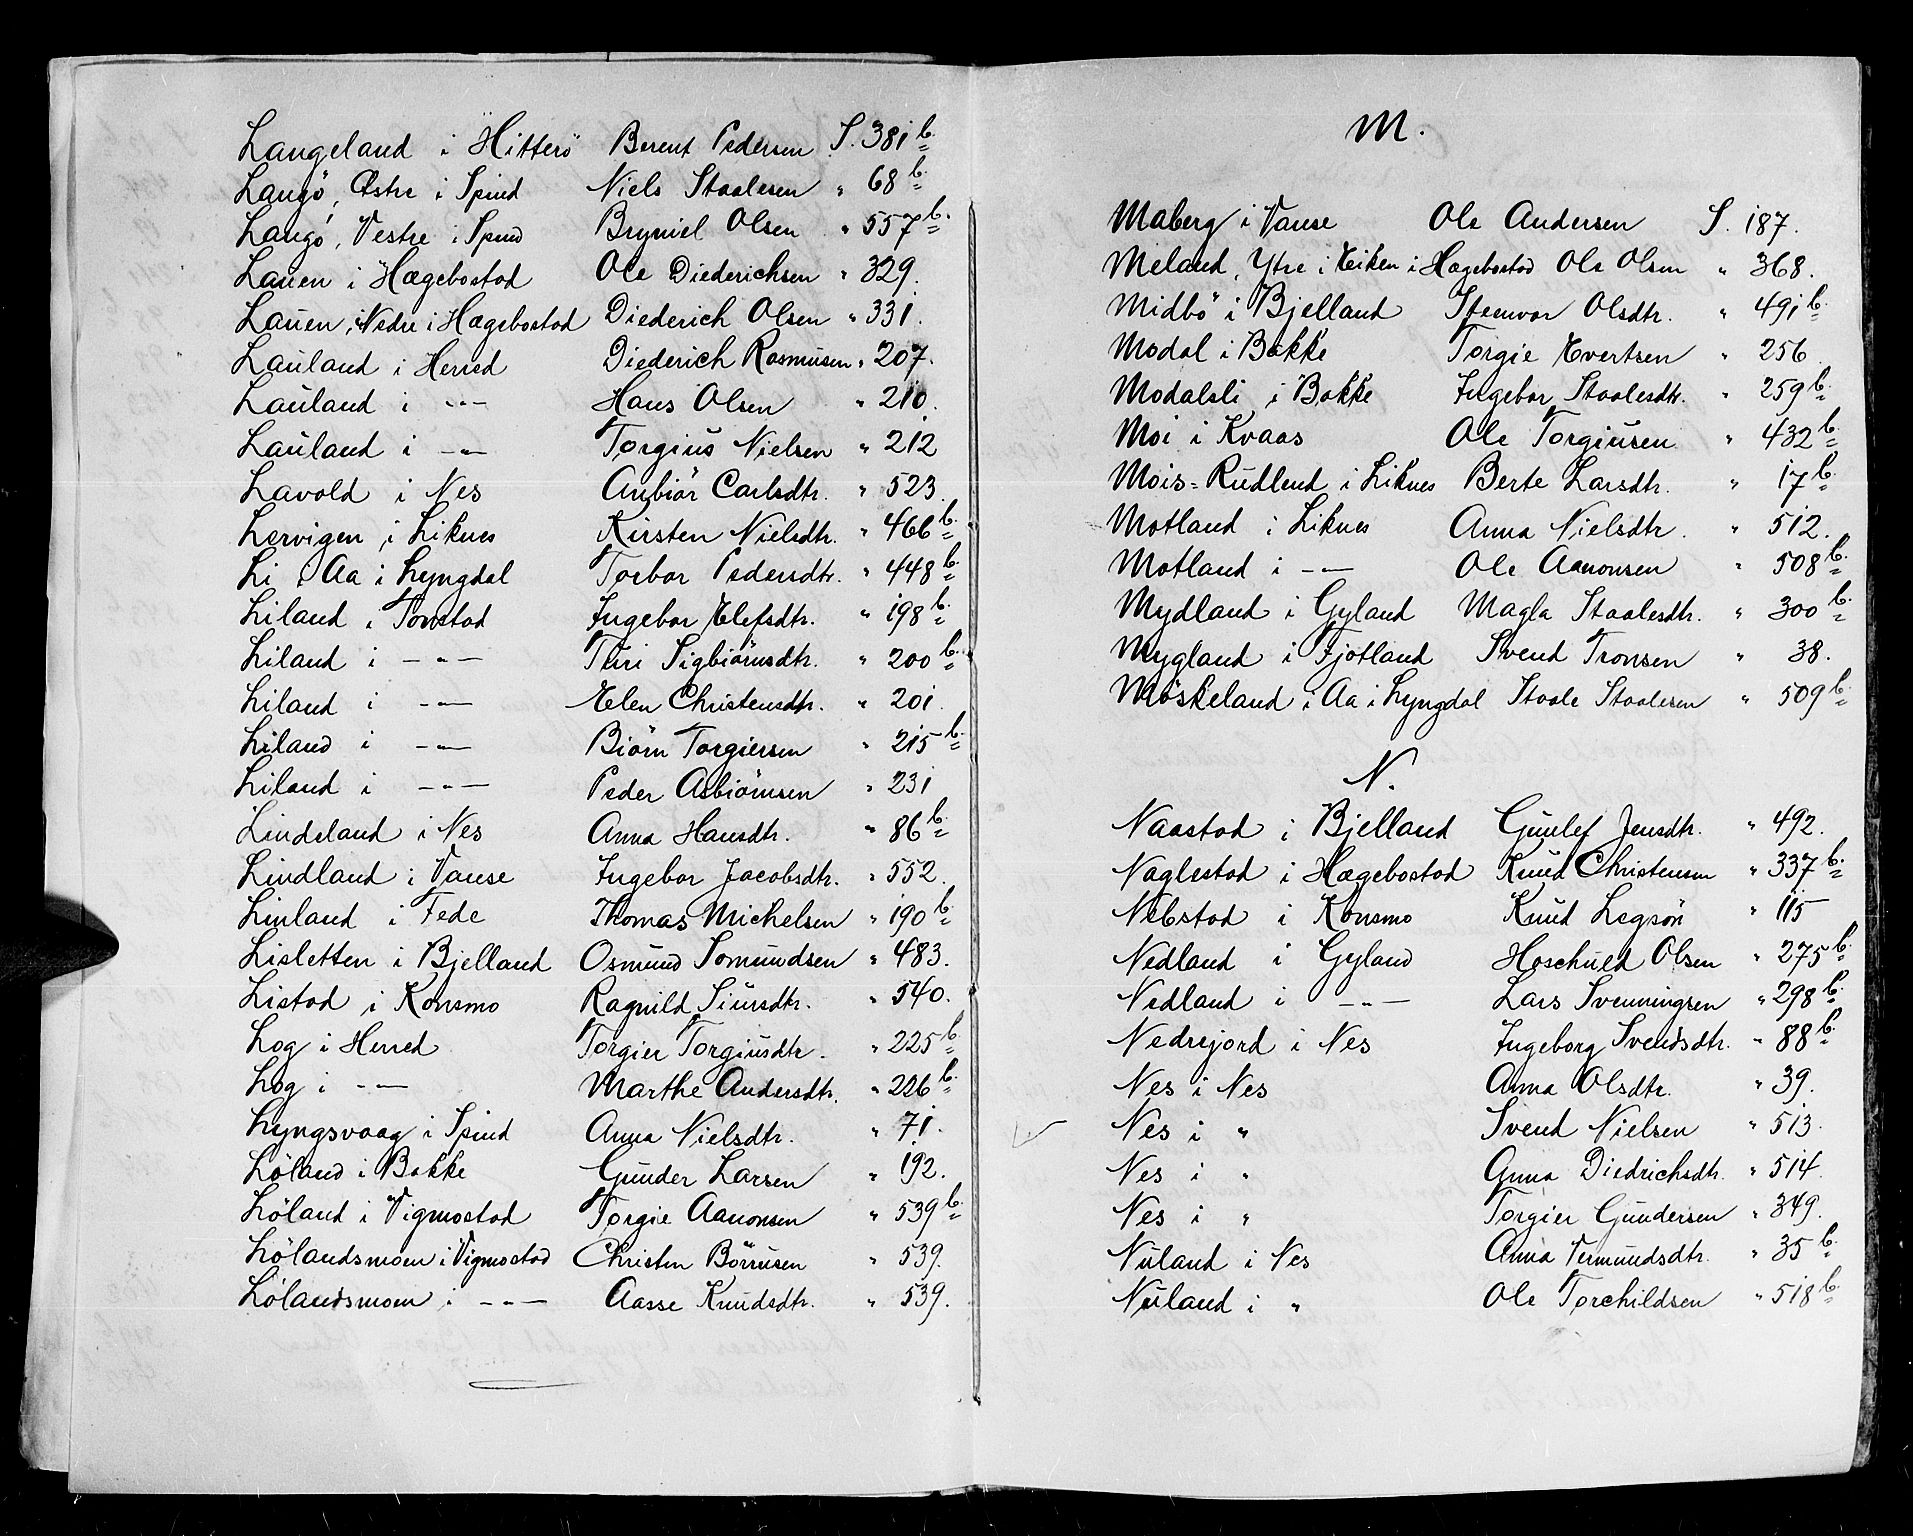 Langeland i Hitterö Berent Pedersen S. 381 b.
Langö, Østre i Spind Niels Staalesen " 68 b.
Langö, Vestre i Spind Bryniel Olsen " 557 b.
Lauen i Hægebostad Ole Diederichsen " 329.
Lauen, Nedre i Hægebostad Diederich Olsen " 331.
Lauland i Herred Diederich Rasmusen " 207.
Lauland i -"- Hans Olsen " 210.
Lauland i -"- Torgius Nielsen " 212
Lavold i Nes Anbiör Carlsdtr. " 523.
Lervigen i Liknes Kirsten Nielsdtr. " 466 b.
Li i Aa i Lyngdal Torbor Pedersdtr. " 448 b.
Liland i Tonstad Ingebor Elefsdtr. " 198 b.
Liland i -"- Turi Sigbiörnsdtr. " 200 b.
Liland i -"- Elen Christensdtr. " 201.
Liland i -"- Biörn Torgiersen " 215 b.
Liland i -"- Peder Asbiörnsen " 231
Lindeland i Nes Anna Hansdtr. " 86 b.
Lindland i Vanse Ingebor Jacobsdtr. " 552.
Linland i Fede Thomas Michelsen " 190 b.
Lisletten i Bjelland Osmund Tomundsen " 483.
Listad i Konsmo Ragnild Siursdtr. " 540.
Log i Herred Torgier Torgiusdtr. " 225 b.
Log i -"- Marthe Andersdtr. " 226 b.
Lyngsvaag i Spind Anna Nielsdtr. " 71.
Löland i Bakke Gunder Larsen " 192.
Löland i Vigmostad Torgie Aanonsen " 539 b.
Lölandsmoen i Vigmostad Christen Börrusen " 539.
Lölandsmoen i -"- Aasse Knudsdtr. " 539.
M.
Maberg i Vanse Ole Andersen S. 187.
Meland, Ytre i Eiken i Hægebostad Ole Olsen " 368.
Midbö i Bjelland Stenvor Olsdtr. " 491 b.
Modal i Bakke Torgie Evertsen " 256
Modalsli i Bakke Ingebor Staalesdtr. " 259 b.
Moi i Kvaas Ole Torgiusen " 432 b.
Mois-Rudlend i Liknes Berte Larsdtr. " 17 b.
Motland i Liknes Anna Nielsdtr. " 512.
Motland i -"- Ole Aanonsen " 508 b.
Mydland i Gyland Magla Staalesdtr. " 300 b.
Mygland i Fjotland Svend Tronsen " 38.
Möskeland i Aa i Lyngdal Staale Staalesen " 509 b.
N.
Naastad i Bjelland Gunlef Jensdtr. " 492.
Naglestad i Hægebostad Knud Christensen " 337 b.
Nebstad i Konsmo Knud Legsön " 115
Nedland i Gyland Hoschuld Olsen " 275 b.
Nedland i -"- Lars Svenningsen " 298 b.
Nedrejord i Nes Ingeborg Svendsdtr. " 88 b.
Nes i Nes Anna Olsdtr. " 39.
Nes i " Svend Nielsen " 513.
Nes i " Anna Diedrichsdtr. " 514.
Nes i " Torgier Gundersen " 349.
Nuland i Nes Anna Vermundsdtr. " 35 b.
Nuland i " Ole Torchildsen " 518 b.